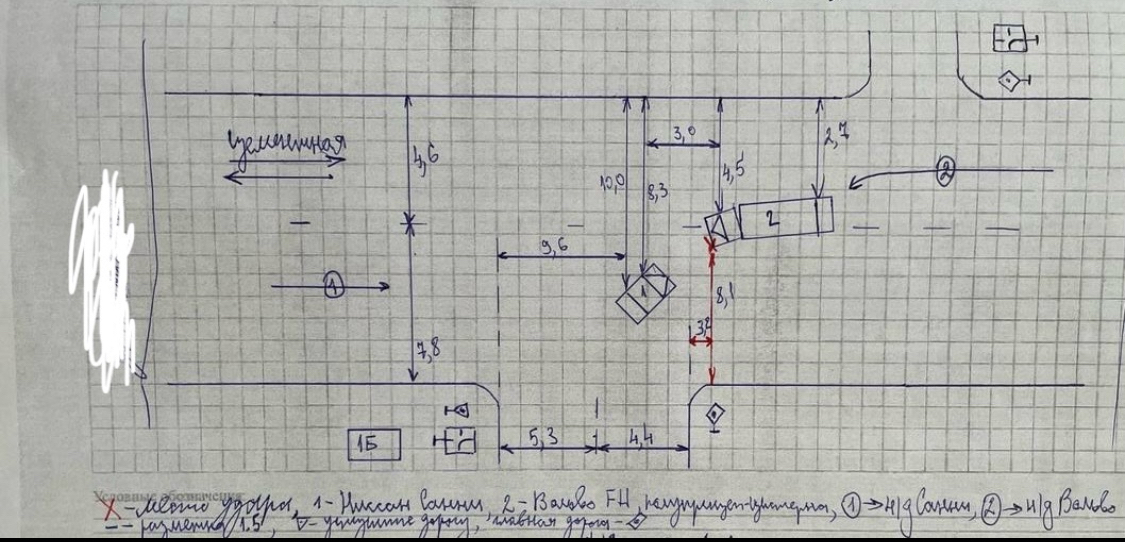 Цементная
4,6
3,0
2,7
10,0
8,3
4,5
2
2
9,6
1
1
8,1
3,2
7,8
1Б
5,3
4,4
Условные обозначения:
X - место удара, 1 - Ниссан Санни, 2 - Вольво FH, полуприцеп-цистерна, 1 → н/д Санни, 2 → н/д Вольво
-- разметка 1.5, ▽ - уступите дорогу, главная дорога -